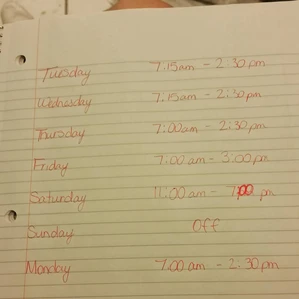 Tuesday 7:15am - 2:30pm
Wednesday 7:15am - 2:30pm
Thursday 7:00am - 2:30pm
Friday 7:00am - 3:00pm
Saturday 11:00am - 7:00 pm
Sunday Off
Monday 7:00 am - 2:30pm